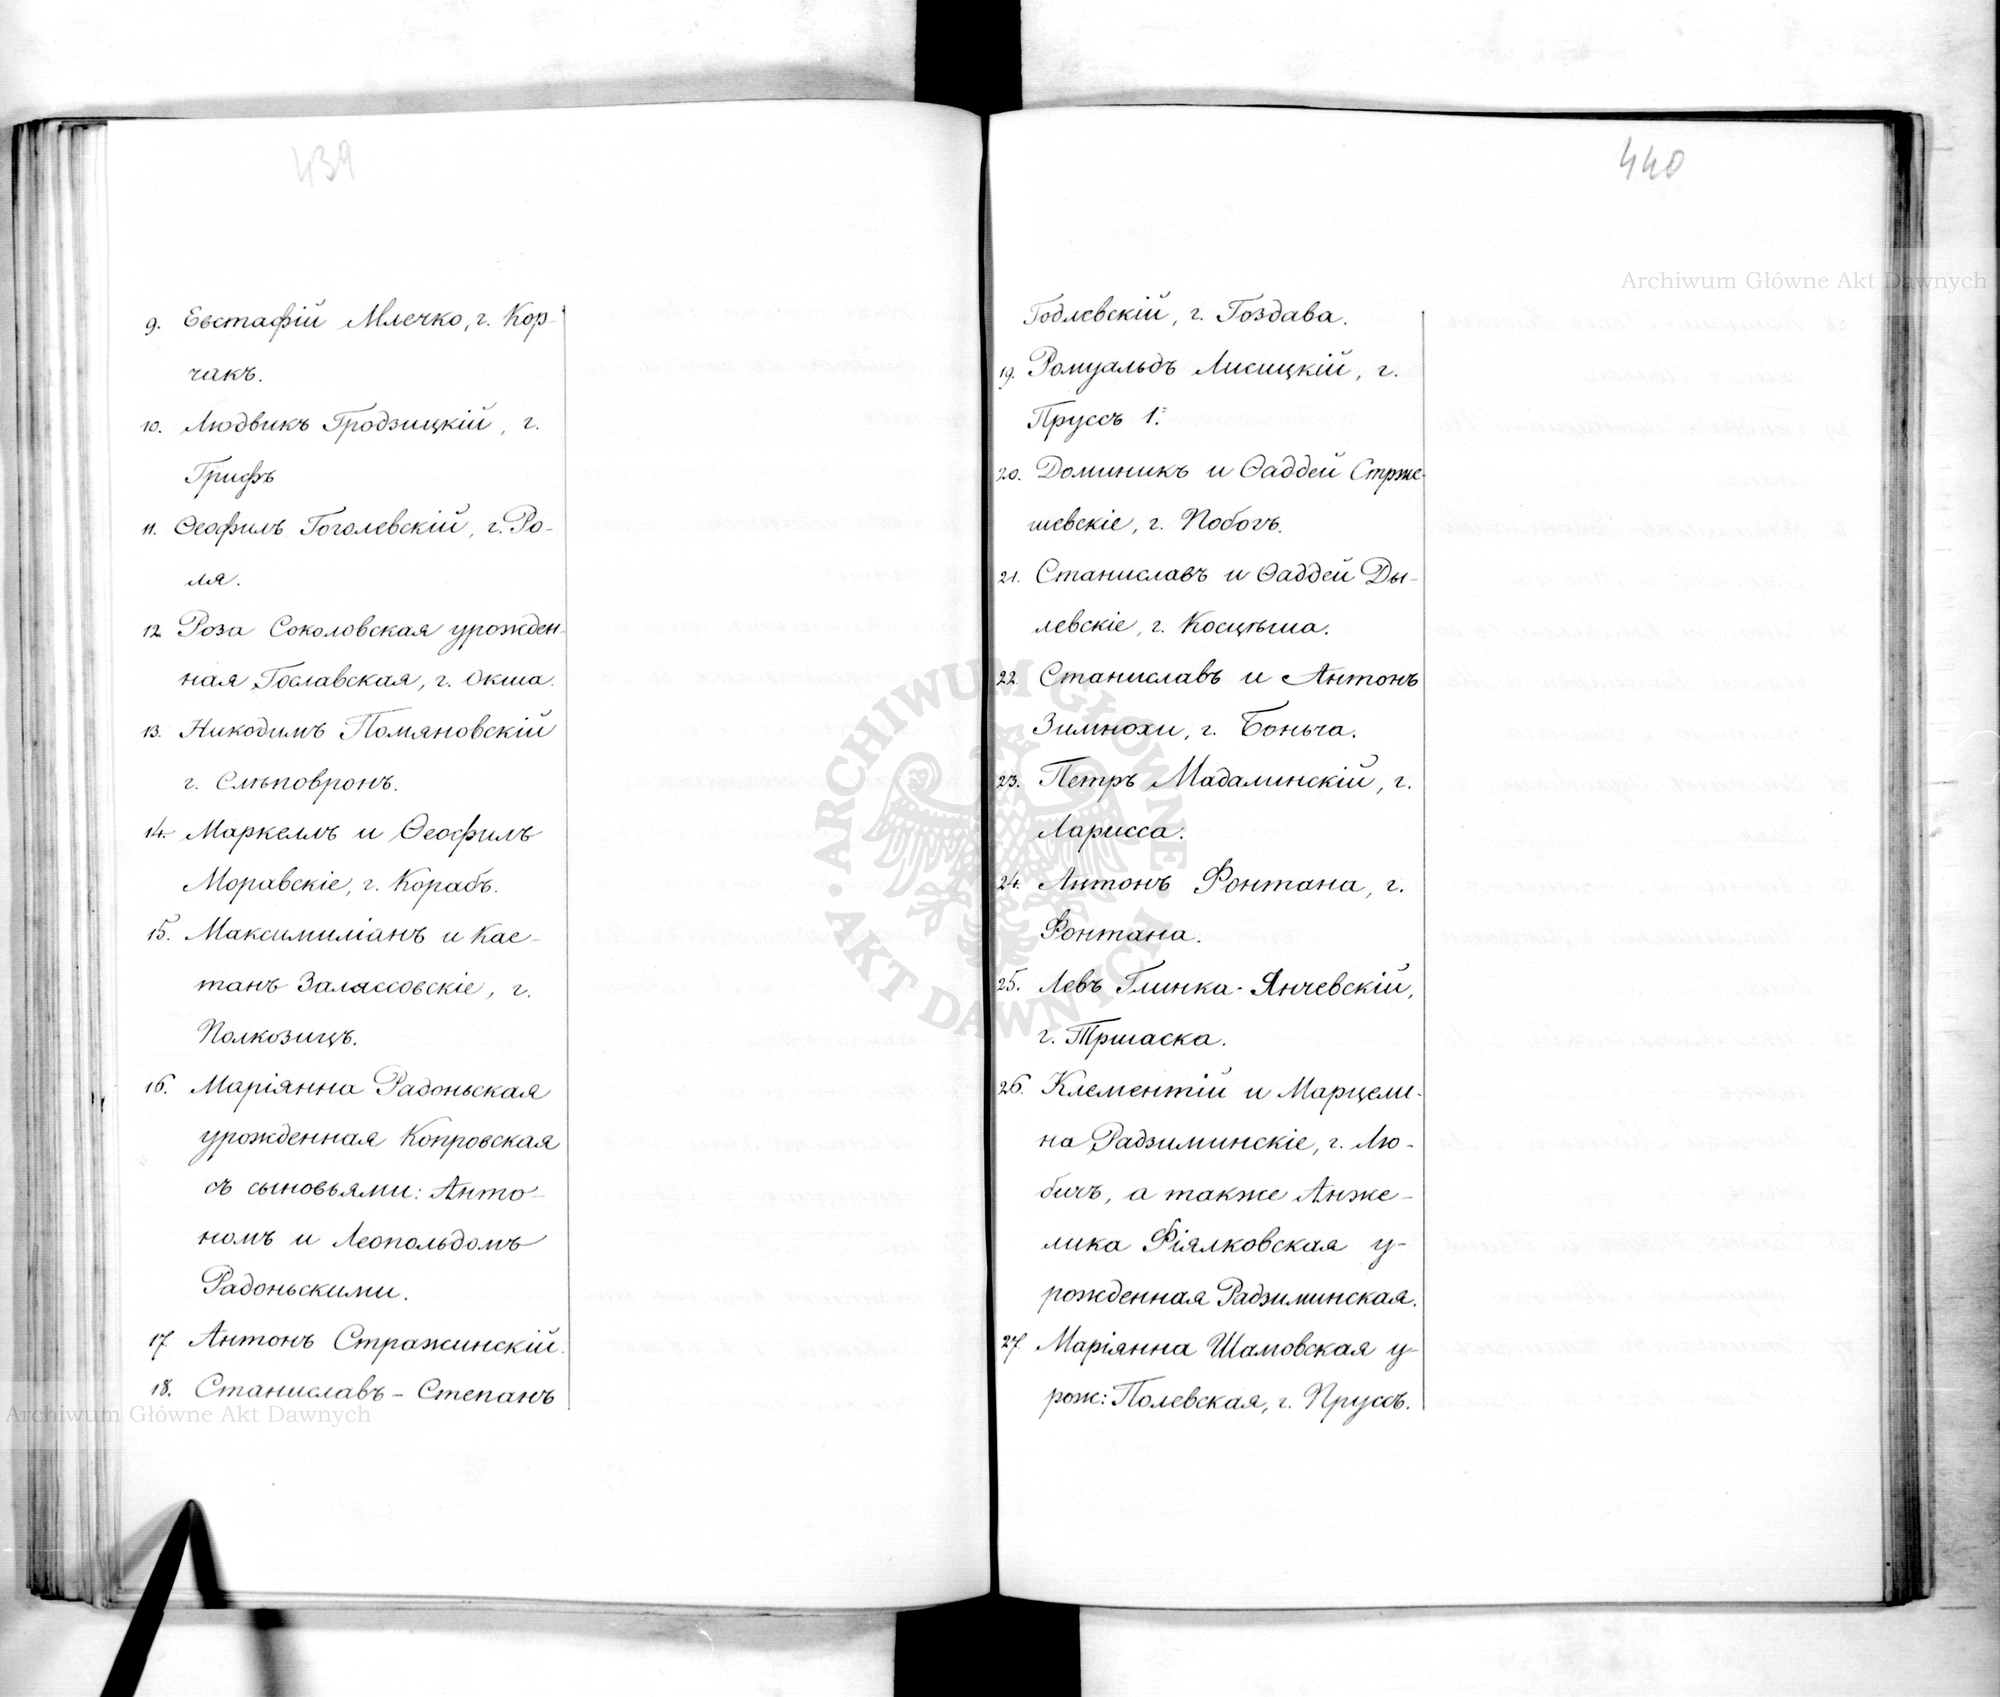 439
9. Евстафій Млечко, г. Кор-
чакъ.
10. Людвикъ Гродзицкій, г.
Грифъ
11. Ѳеофилъ Гоголевскій, г. Ро-
ля.
12. Роза Соколовская урожден-
ная Гославская, г. Окша.
13. Никодимъ Помяновскій
г. Слѣповронъ.
14. Маркеллъ и Ѳеофилъ
Моравскіе, г. Корабъ.
15. Максимиліанъ и Кае-
танъ Залассовскіе, г.
Полкозицъ.
16. Маріянна Радоньская
урожденная Копровская
съ сыновьями: Анто-
номъ и Леопольдомъ
Радоньскими.
17 Антонъ Стражинскій.
18. Станиславъ-Степанъ
Archiwum Główne Akt Dawnych
440
Archiwum Główne Akt Dawnych
Годлевскій, г. Гоздава.
19. Ромуальдъ Лисицкій, г.
Пруссъ 1.
20. Доминикъ и Ѳаддей Стрже-
шевскіе, г. Побогъ.
21. Станиславъ и Ѳаддей Ды-
левскіе, г. Косцѣша.
22. Станиславъ и Антонъ
Зимнохи, г. Боньча.
23. Петръ Мадалинскій, г.
Ларисса.
24. Антонъ Фонтана, г.
Фонтана.
25. Левъ Глинка-Янчевскій,
г. Тршаска.
26. Клементій и Марцели-
на Радзиминскіе, г. Лю-
бичъ, а также Анже-
лика Фіялковская у-
рожденная Радзиминская.
27 Маріянна Шамовская у-
рож: Полевская, г. Пруссъ.
ARCHIWUM GŁÓWNE AKT DAWNYCH